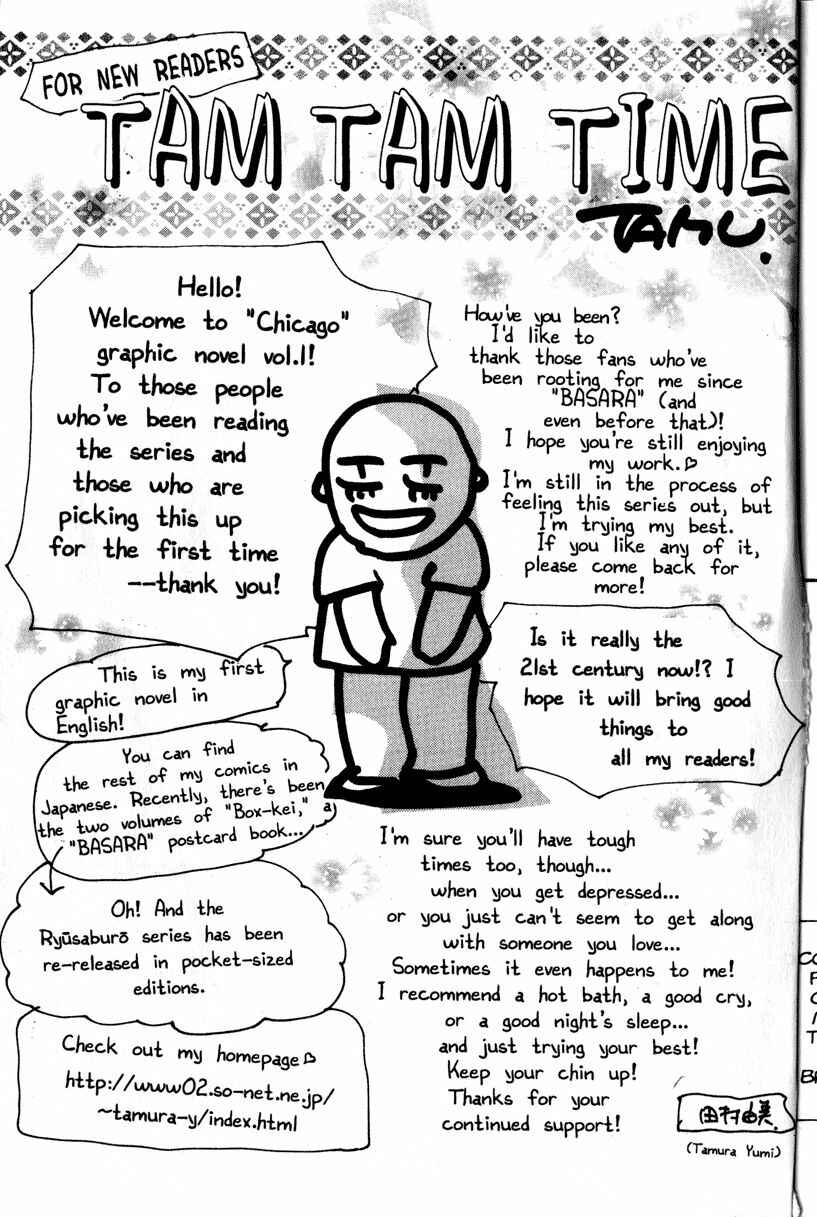 FOR NEW READERS
TAM TAM TIME
TAMU.
Hello!
Welcome to "Chicago"
graphic novel vol.1!
To those people
who've been reading
the series and
those who are
picking this up
for the first time
--thank you!
How've you been?
I'd like to
thank those fans who've
been rooting for me since
"BASARA" (and
even before that)!
I hope you're still enjoying
my work.♡
I'm still in the process of
feeling this series out, but
I'm trying my best.
If you like any of it,
please come back for
more!
Is it really the
21st century now!? I
hope it will bring good
things to
all my readers!
This is my first
graphic novel in
English!
You can find
the rest of my comics in
Japanese. Recently, there's been
the two volumes of "Box-kei," a
"BASARA" postcard book...
Oh! And the
Ryūsaburō series has been
re-released in pocket-sized
editions.
Check out my homepage♡
http://www02.so-net.ne.jp/
~tamura-y/index.html
I'm sure you'll have tough
times too, though...
when you get depressed...
or you just can't seem to get along
with someone you love...
Sometimes it even happens to me!
I recommend a hot bath, a good cry,
or a good night's sleep...
and just trying your best!
Keep your chin up!
Thanks for your
continued support!
田村由美.
(Tamura Yumi)